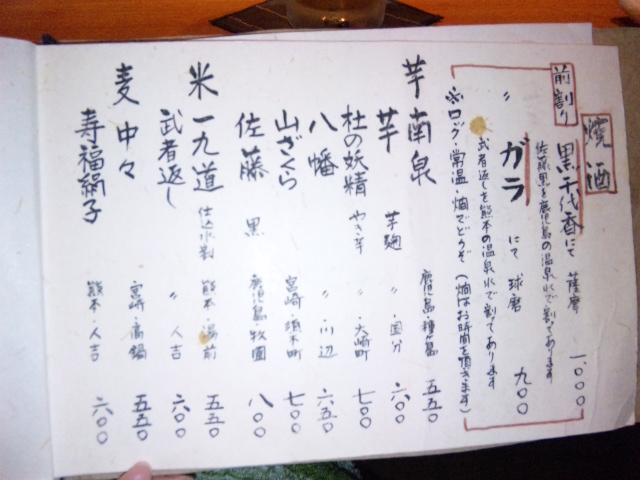 焼酒
前割り 黒千代香にて 薩摩 一、〇〇〇
佐藤黒を鹿児島の温泉水で割てあります
〃 ガラ にて 球磨 九〇〇
武者返しを熊本の温泉水で割てあります
※ロック・常温・燗でどうぞ（燗はお時間を頂きます）
芋 南泉 鹿児島・種ヶ島 五五〇
芋 芋麹 〃・国分 六〇〇
杜の妖精 やき芋 〃・大崎町 七〇〇
八幡 〃・川辺 六五〇
山ざくら 宮崎・須木町 七〇〇
佐藤 黒 鹿児島・牧園 八〇〇
米 一九道 仕込水割 熊本・湯前 五五〇
武者返し 〃 人吉 六〇〇
麦 中々 宮崎・高鍋 五五〇
寿福絹子 熊本・人吉 六〇〇